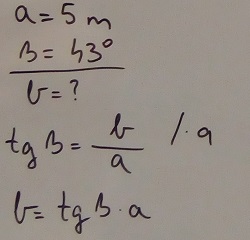 a = 5 m
β = 43°
b = ?
tg β = b/a /·a
b = tg β · a